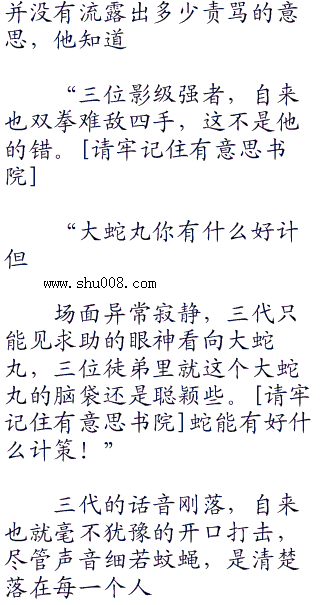 并没有流露出多少责骂的意
思，他知道
“三位影级强者，自来
也双拳难敌四手，这不是他
的错。[请牢记住有意思书
院]
“大蛇丸你有什么好计
但
www.shu008.com
场面异常寂静，三代只
能见求助的眼神看向大蛇
丸，三位徒弟里就这个大蛇
丸的脑袋还是聪颖些。[请牢
记住有意思书院]蛇能有好什
么计策！”
三代的话音刚落，自来
也就毫不犹豫的开口打击，
尽管声音细若蚊蝇，是清楚
落在每一个人